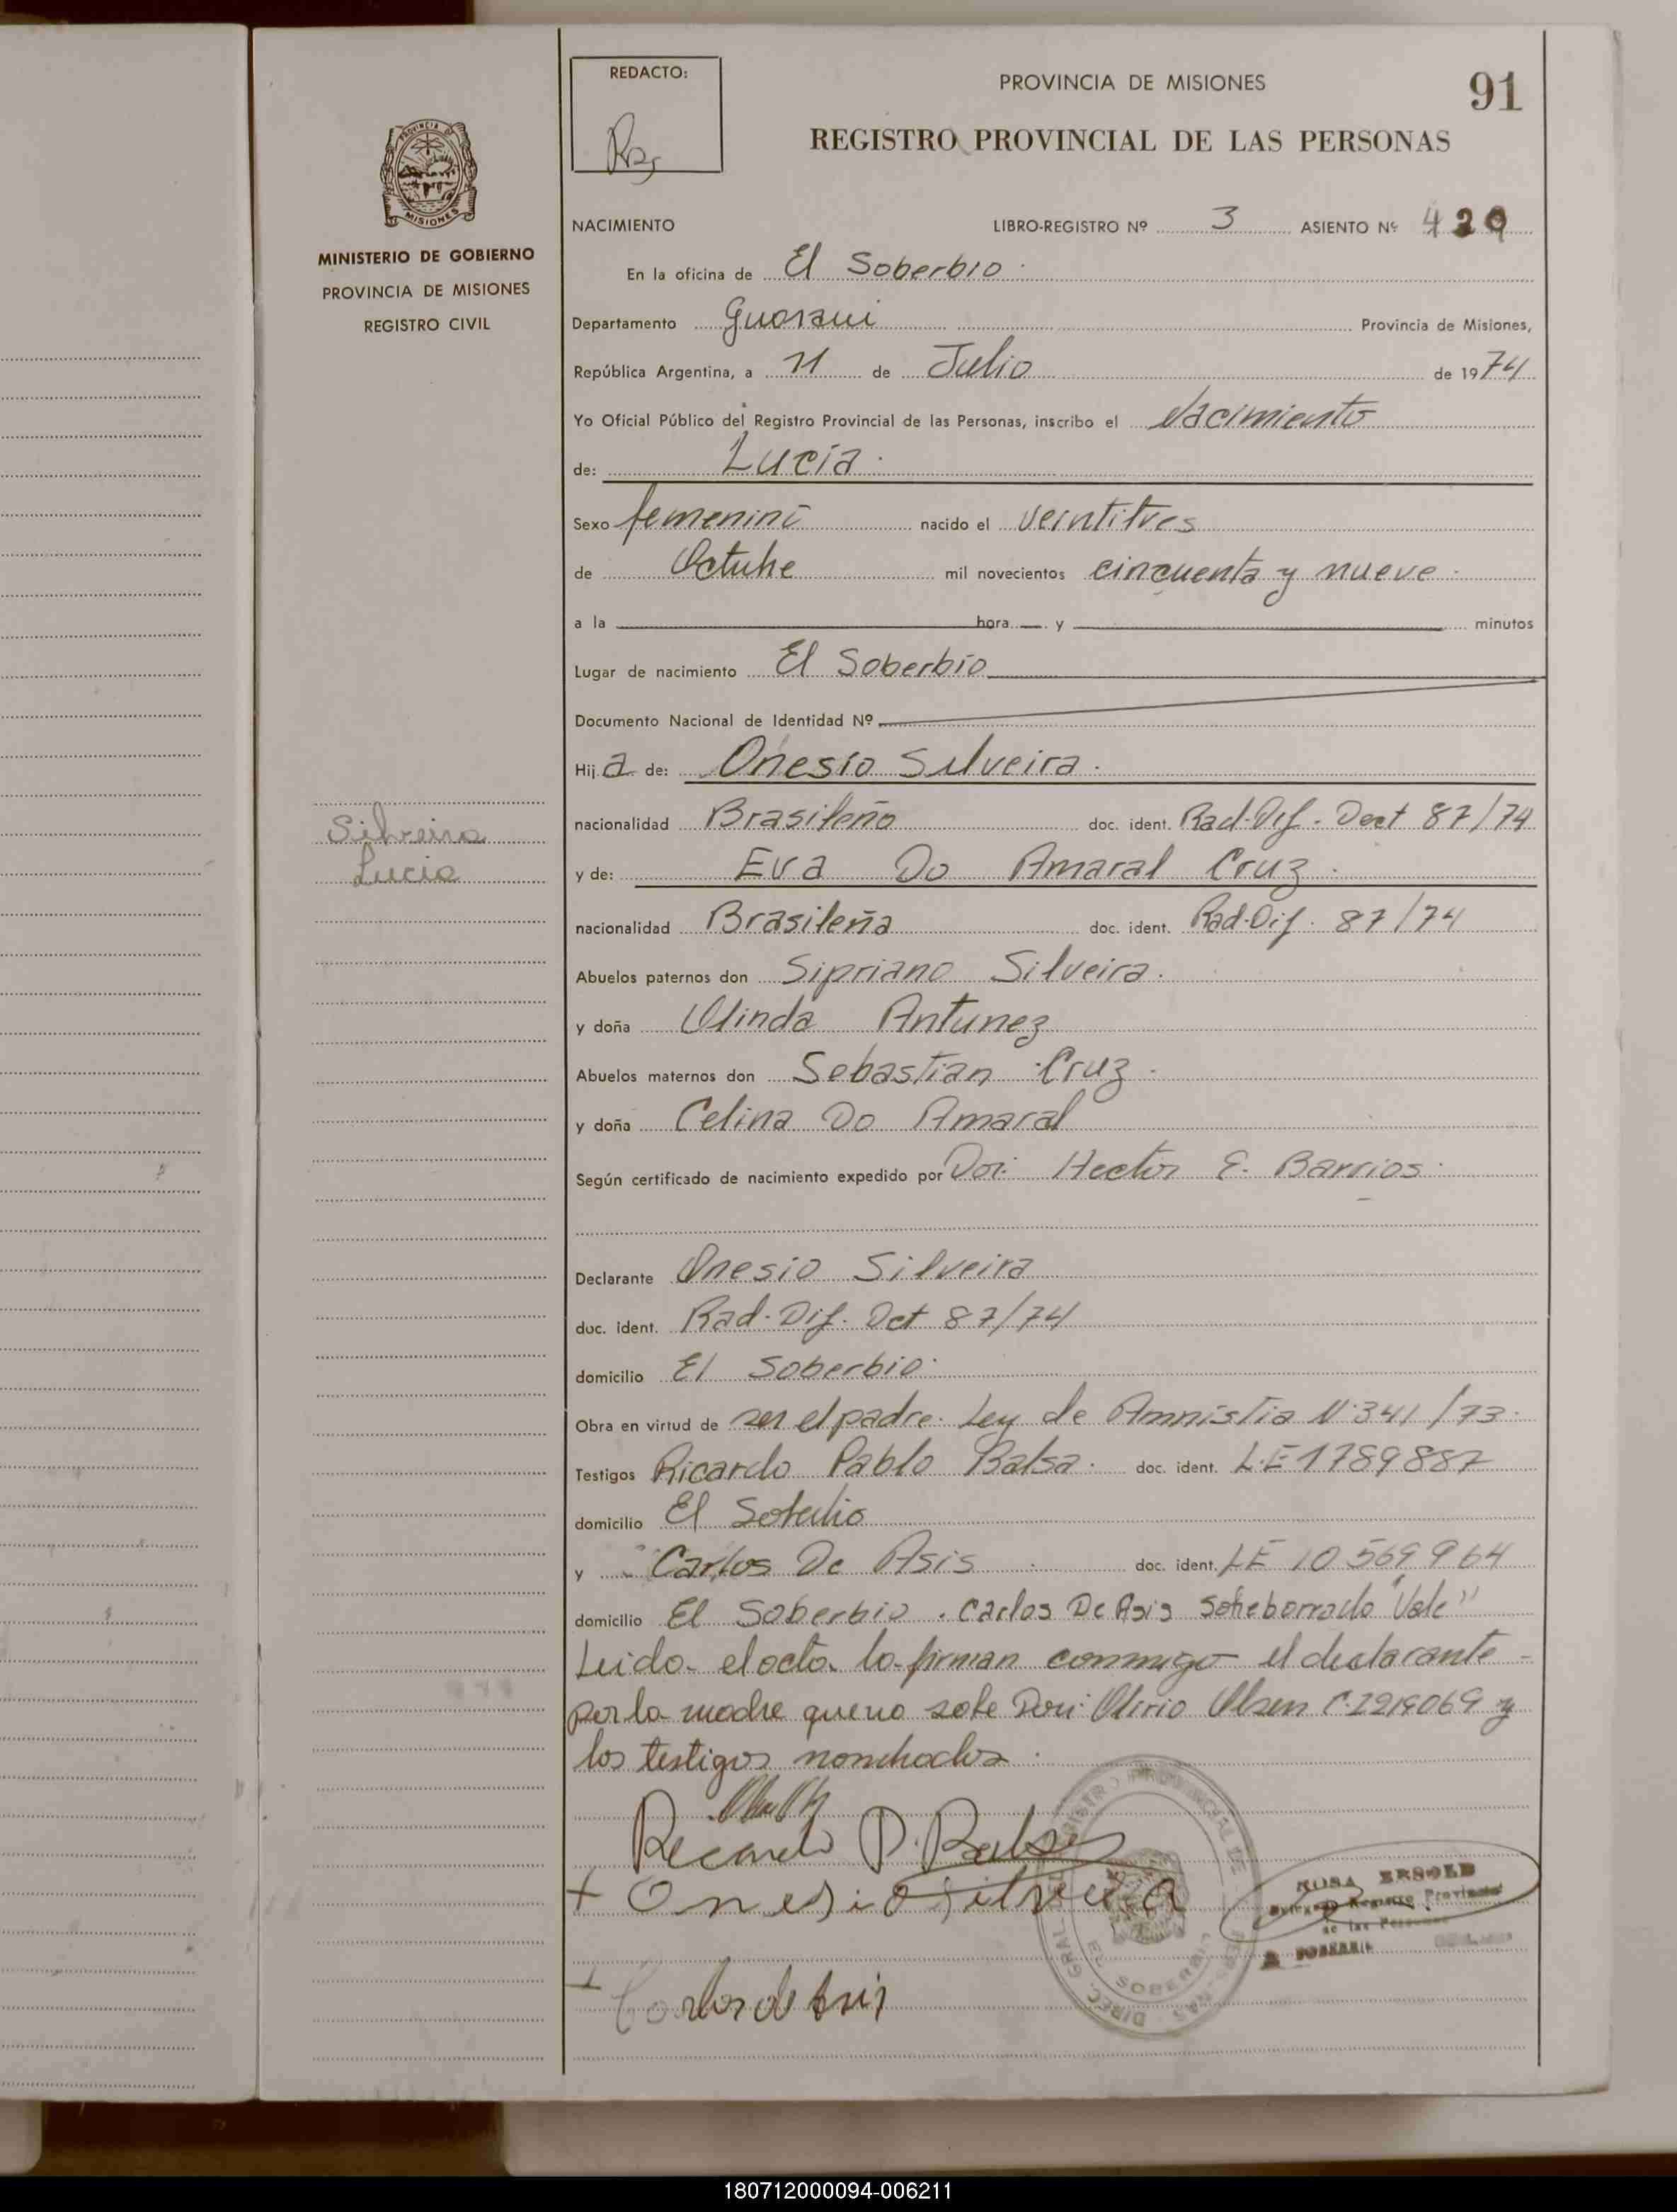 REDACTO:
PROVINCIA DE MISIONES
91
REGISTRO PROVINCIAL DE LAS PERSONAS
PROVINCIA
MISIONES
MINISTERIO DE GOBIERNO
PROVINCIA DE MISIONES
REGISTRO CIVIL
Silveira
Lucia
NACIMIENTO LIBRO-REGISTRO Nº 3 ASIENTO Nº 429
En la oficina de El Soberbio
Departamento Guarani Provincia de Misiones,
República Argentina, a 11 de Julio de 1974
Yo Oficial Público del Registro Provincial de las Personas, inscribo el Nacimiento
de: Lucía
Sexo femenino nacido el veintitres
de Octubre mil novecientos cincuenta y nueve
a la hora y minutos
Lugar de nacimiento El Soberbio
Documento Nacional de Identidad Nº
Hij a de: Onesio Silveira
nacionalidad Brasileño doc. ident. Rad. Dif. Dect 87/74
y de: Eva Do Amaral Cruz
nacionalidad Brasileña doc. ident. Rad. Dif. 87/74
Abuelos paternos don Sipriano Silveira
y doña Olinda Antunez
Abuelos maternos don Sebastian Cruz
y doña Celina Do Amaral
Según certificado de nacimiento expedido por Dr. Hector E. Barrios
Declarante Onesio Silveira
doc. ident. Rad. Dif. Dct 87/74
domicilio El Soberbio
Obra en virtud de ser el padre. Ley de Amnistia N. 341/73
Testigos Ricardo Pablo Balsa doc. ident. L.E 1789887
domicilio El Soberbio
y Carlos De Asis doc. ident. LE 10569964
domicilio El Soberbio. Carlos De Asis Sobreborrado "Vale"
Leido el acto lo firman conmigo el declarante
por la madre que no sabe Olirio Olsen C. 2219069 y
los testigos nombrados
Ricardo P. Balsa
+ Onesio Silveira
Carlos de Asis
EL SOBERBIO
ROSA ERSOLD
180712000094-006211